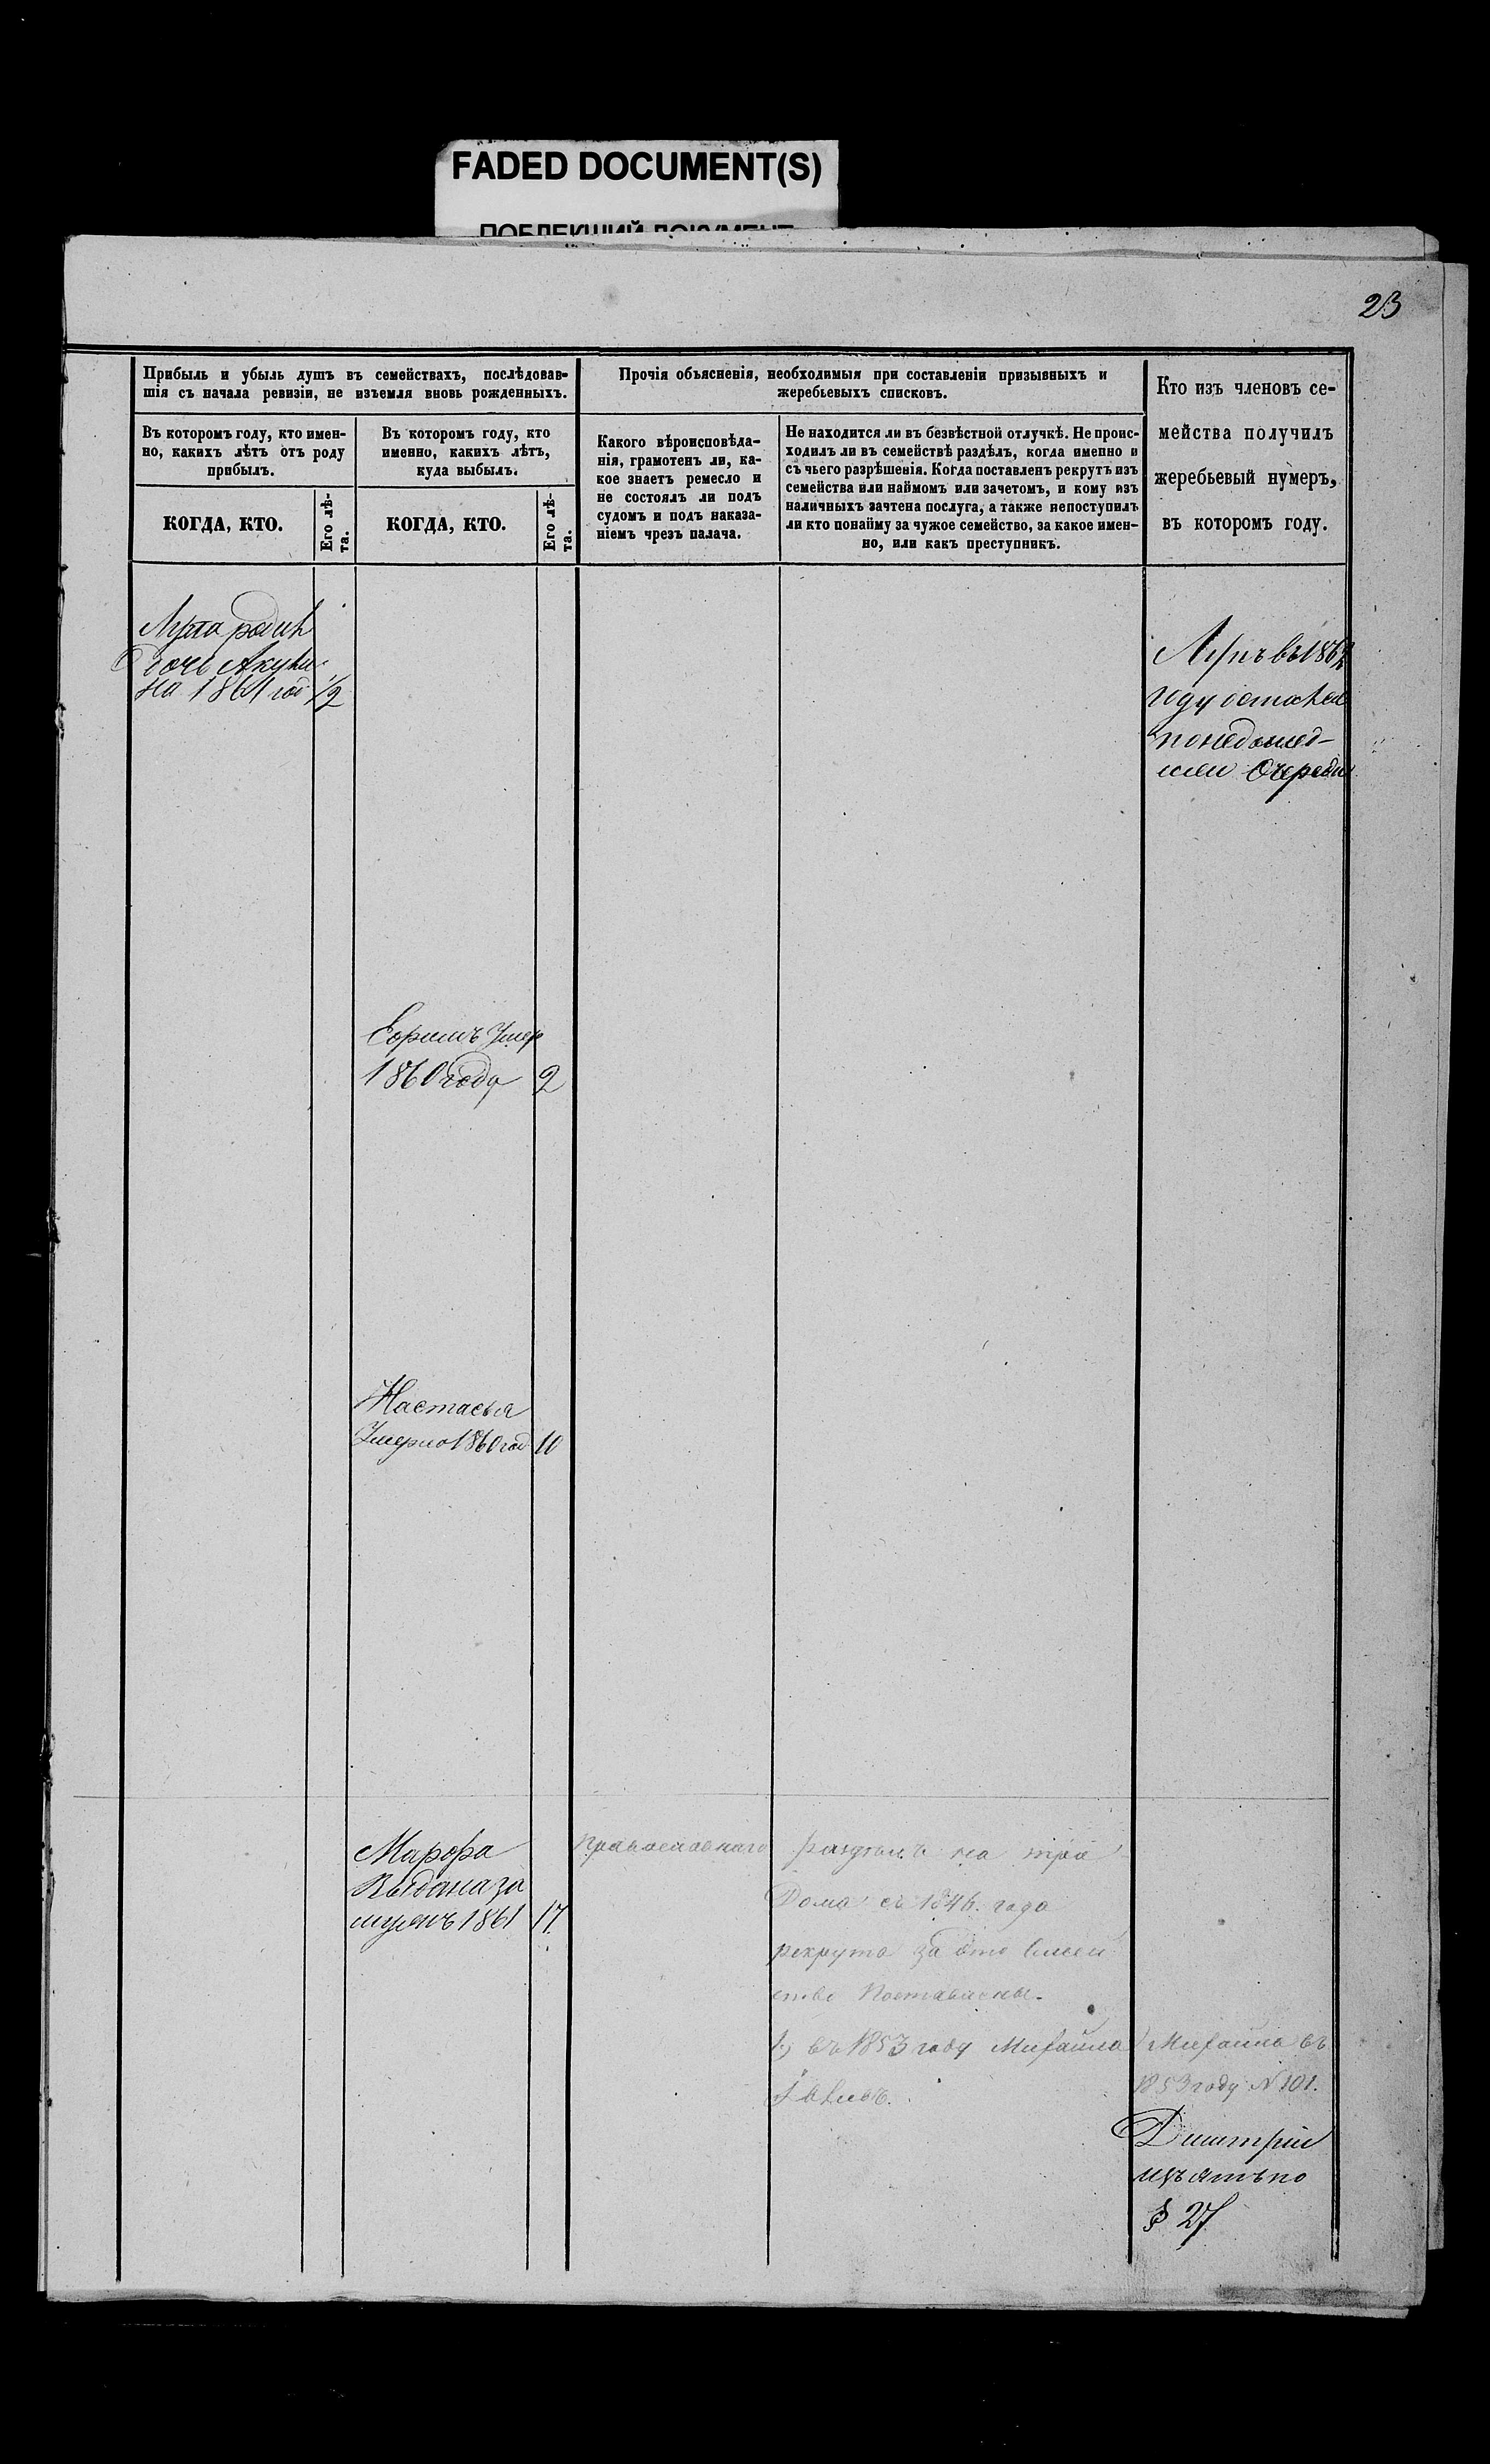 FADED DOCUMENT(S)
ПОБЛЕКШИЙ ДОКУМЕНТ
23
Прибыль и убыль душъ въ семействахъ, послѣдовав-
шія съ начала ревизіи, не изъемля вновь рожденныхъ.
Въ которомъ году, кто имен-
но, какихъ лѣтъ отъ роду
прибылъ.
КОГДА, КТО.
Его лѣ-
та.
Въ которомъ году, кто
именно, какихъ лѣтъ,
куда выбылъ.
КОГДА, КТО.
Его лѣ-
та.
Прочія объясненія, необходимыя при составленіи призывныхъ и
жеребьевыхъ списковъ.
Какого вѣроисповѣда-
нія, грамотенъ ли, ка-
кое знаетъ ремесло и
не состоялъ ли подъ
судомъ и подъ наказа-
ніемъ чрезъ палача.
Не находится ли въ безвѣстной отлучкѣ. Не проис-
ходилъ ли въ семействѣ раздѣлъ, когда именно и
съ чьего разрѣшенія. Когда поставленъ рекрутъ изъ
семейства или наймомъ или зачетомъ, и кому изъ
наличныхъ зачтена послуга, а также непоступилъ
ли кто понайму за чужое семейство, за какое имен-
но, или какъ преступникъ.
Кто изъ членовъ се-
мейства получилъ
жеребьевый нумеръ,
въ которомъ году.
дочь Акули
на 1861 год 1/2
въ 1862
году осталса
понедошед-
шей Очереди
Ефимъ Умер
1860 году 2
Настасья
Умерло 1860 год 10
Марфа
Выдана за
мужъ 1861 17.
Православнаго
раздѣлъ на три
Дома съ 1846. года
рекрута за это Семей
ство Поставлены.
1.) въ 1853 году Михаила
Iвлевъ.
Михаила въ
1853 году N 101.
Дмитрий
изъятъ по
§ 27